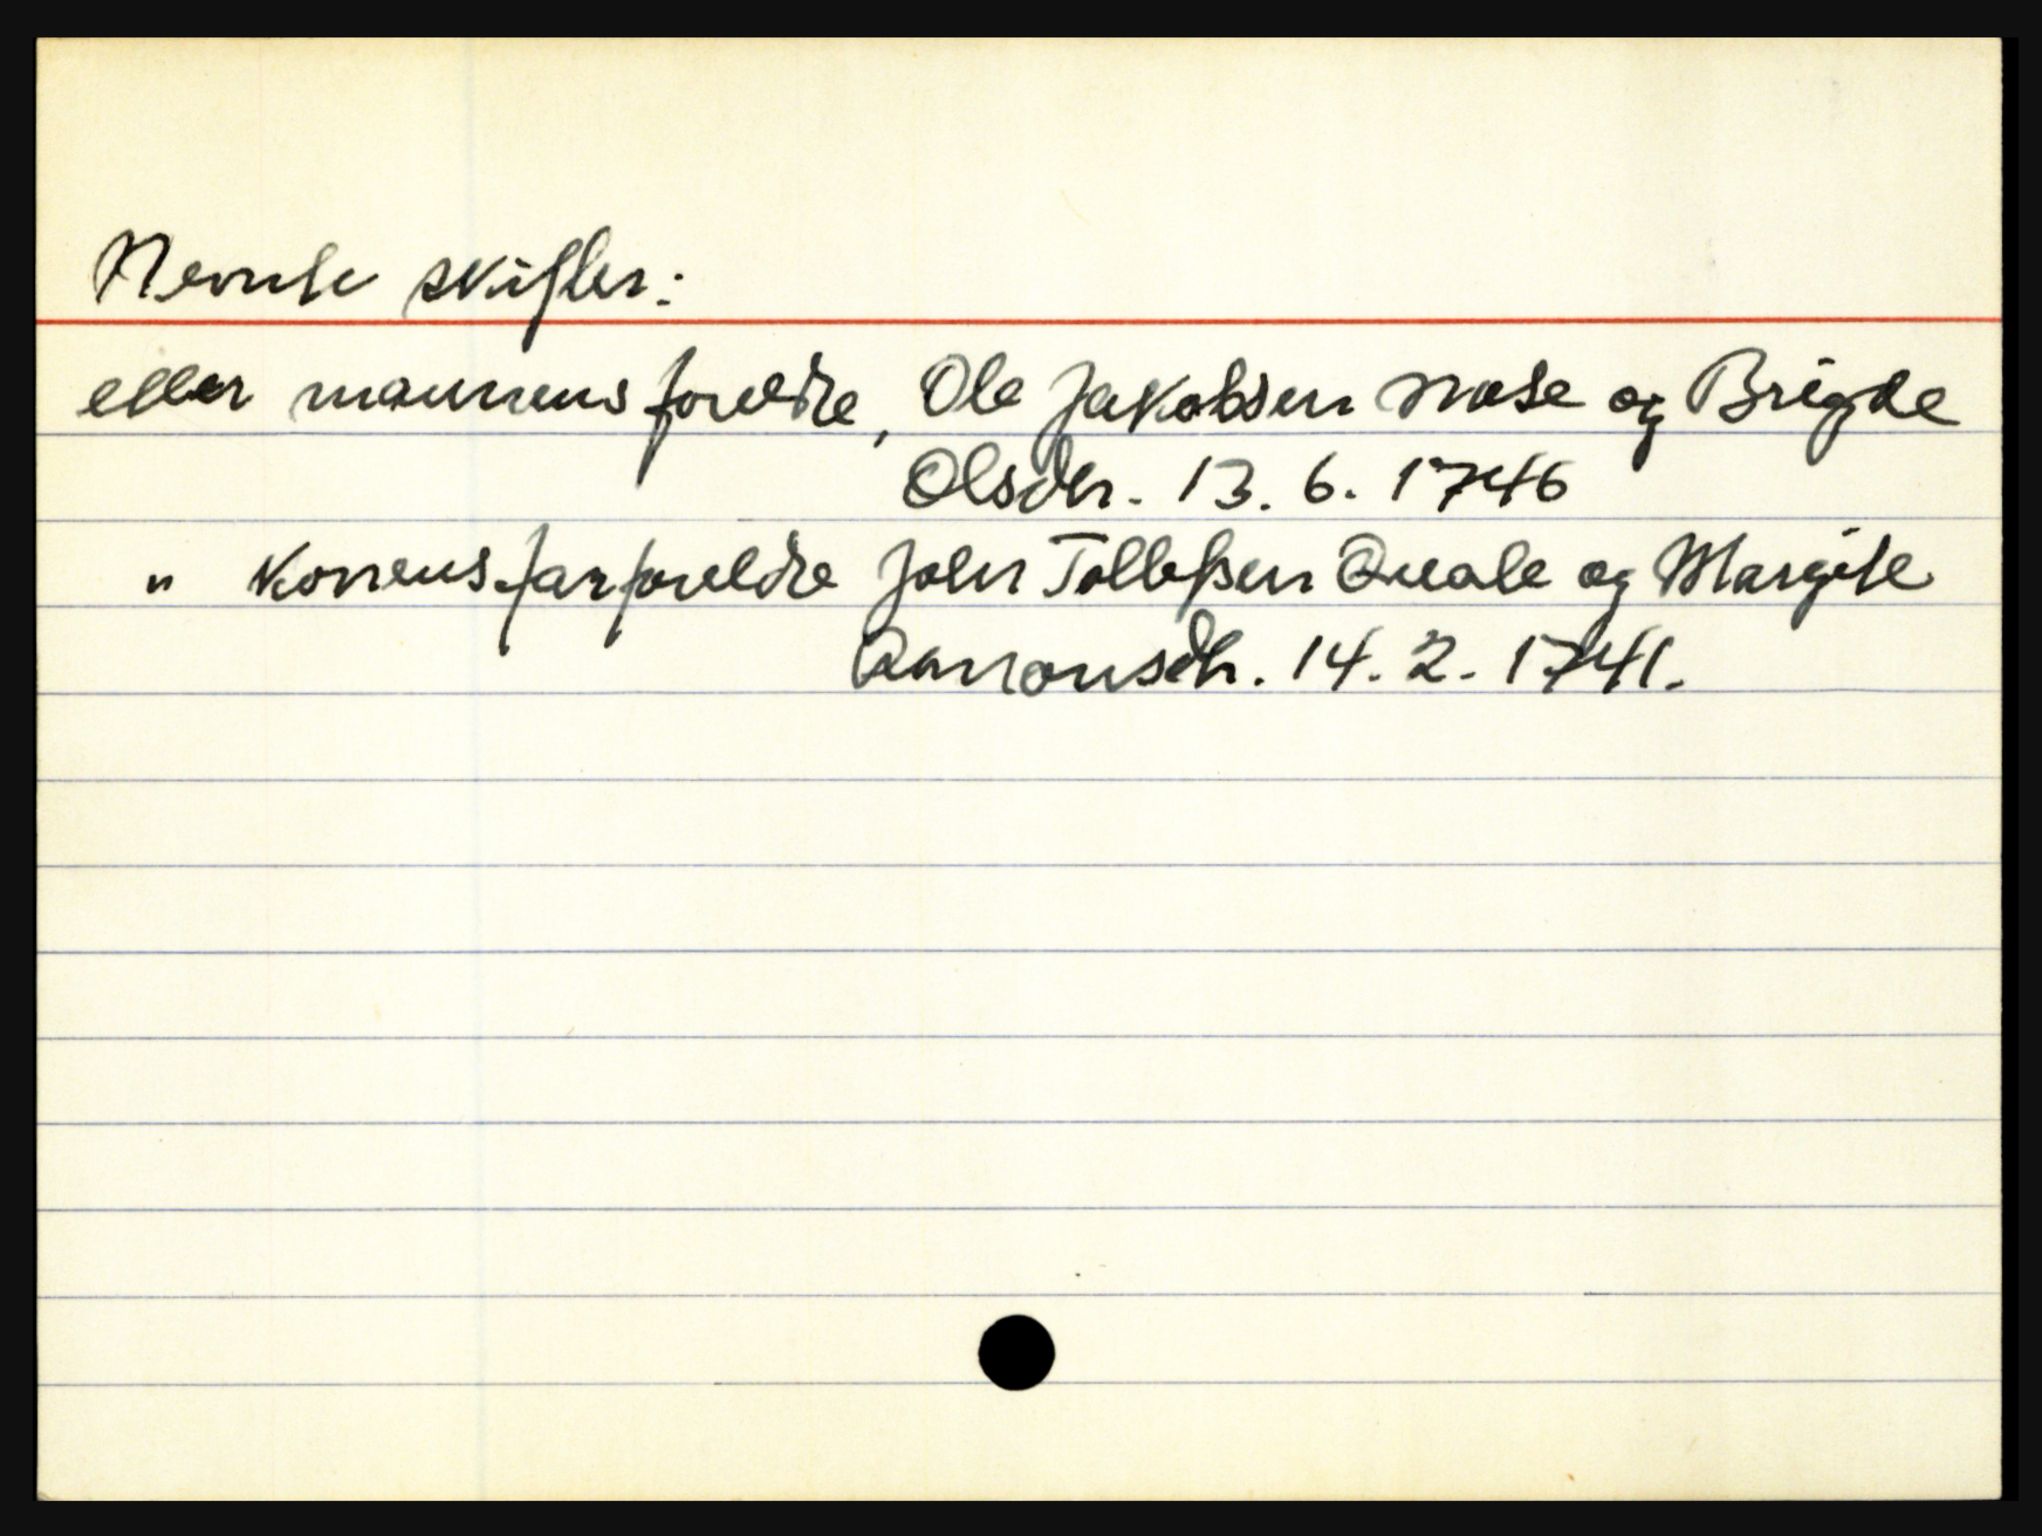 Nevnte skifter:
etter mannens foreldre, Ole Jakobsen Mose og Brigde
Olsdtr. 13. 6. 1746
" konens farforeldre John Tollefsen Quale og Margite
Aanonsdtr. 14. 2. 1741.